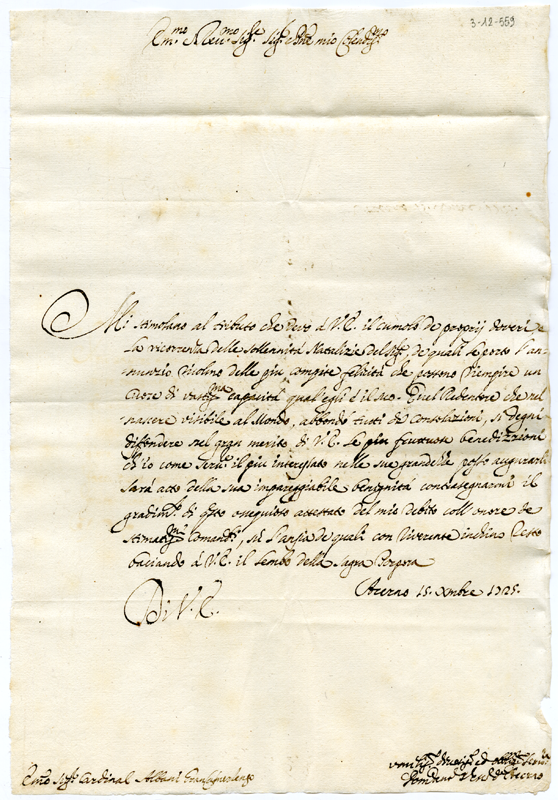 3-12-559
Em.mo R.eu.mo Sig.re Sig.r Pnē mio Colendis.mo
Mi stimolano al tributo che devo á V.E. il cumolo de proprij doveri, e
la ricorrenza delle sollennitá Natalizie del Sig.re, de' quali le porto l'an-
nunzio Vmilmo delle piu compite felicitá che possono riempire un
Cuore di vastis.ma capacitá qual'egli é il suo. Quel Redentore che nel
nascere visibile al Mondo, abbondó tutti de Consolazioni, si degni
diffondere nel gran merito di V.E. le piu fruttuose benedizzioni
ch'io come Seru.e il piu interessato nelle sue grandezze posso augurarle
Sará atto della sua impareggiabile benignitá contrasegnarmi il
gradim.to di q.sto ossequioso attestato del mio debito coll'onore de
stimatis.mi Comandi, sú l'ansia de quali con riverente inchino resto
baciando á V.E. il lembo della Sagra Porpora
Acerno 15. Xmbre 1725.
Di V.E.
Em.o Sig.r Cardinal Albani
Vmilis.o ed obblig.o
Acerno